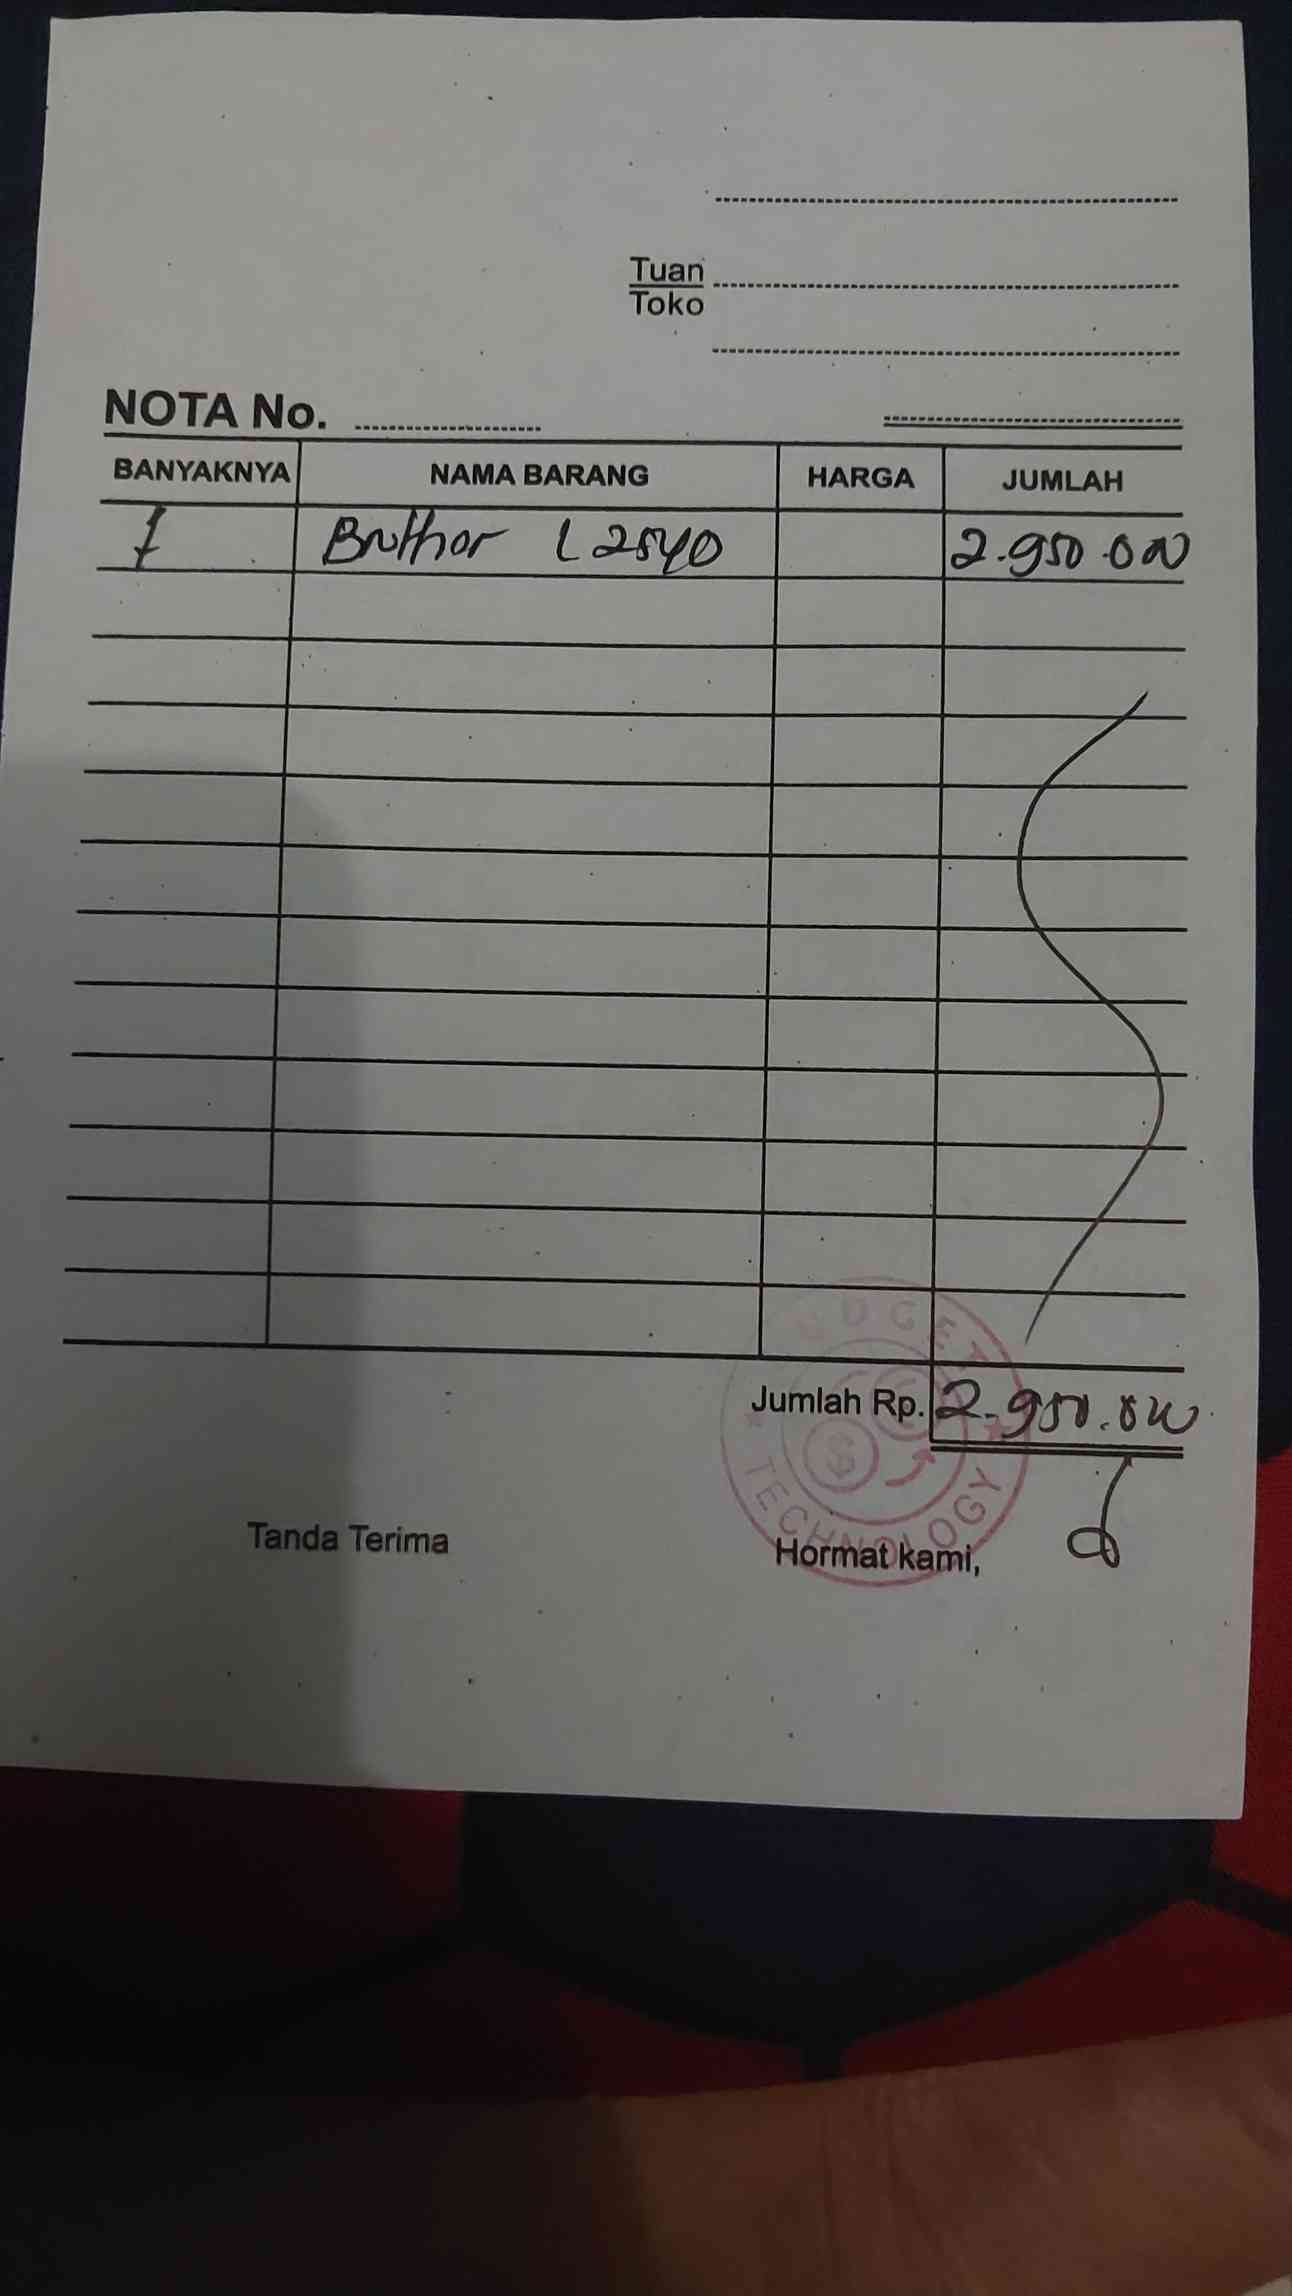 Tuan
Toko
NOTA No.
BANYAKNYA NAMA BARANG HARGA JUMLAH
1 Brothor L2540 2.950.000
Jumlah Rp. 2.950.000
BUDGET
TECHNOLOGY
Tanda Terima Hormat kami,